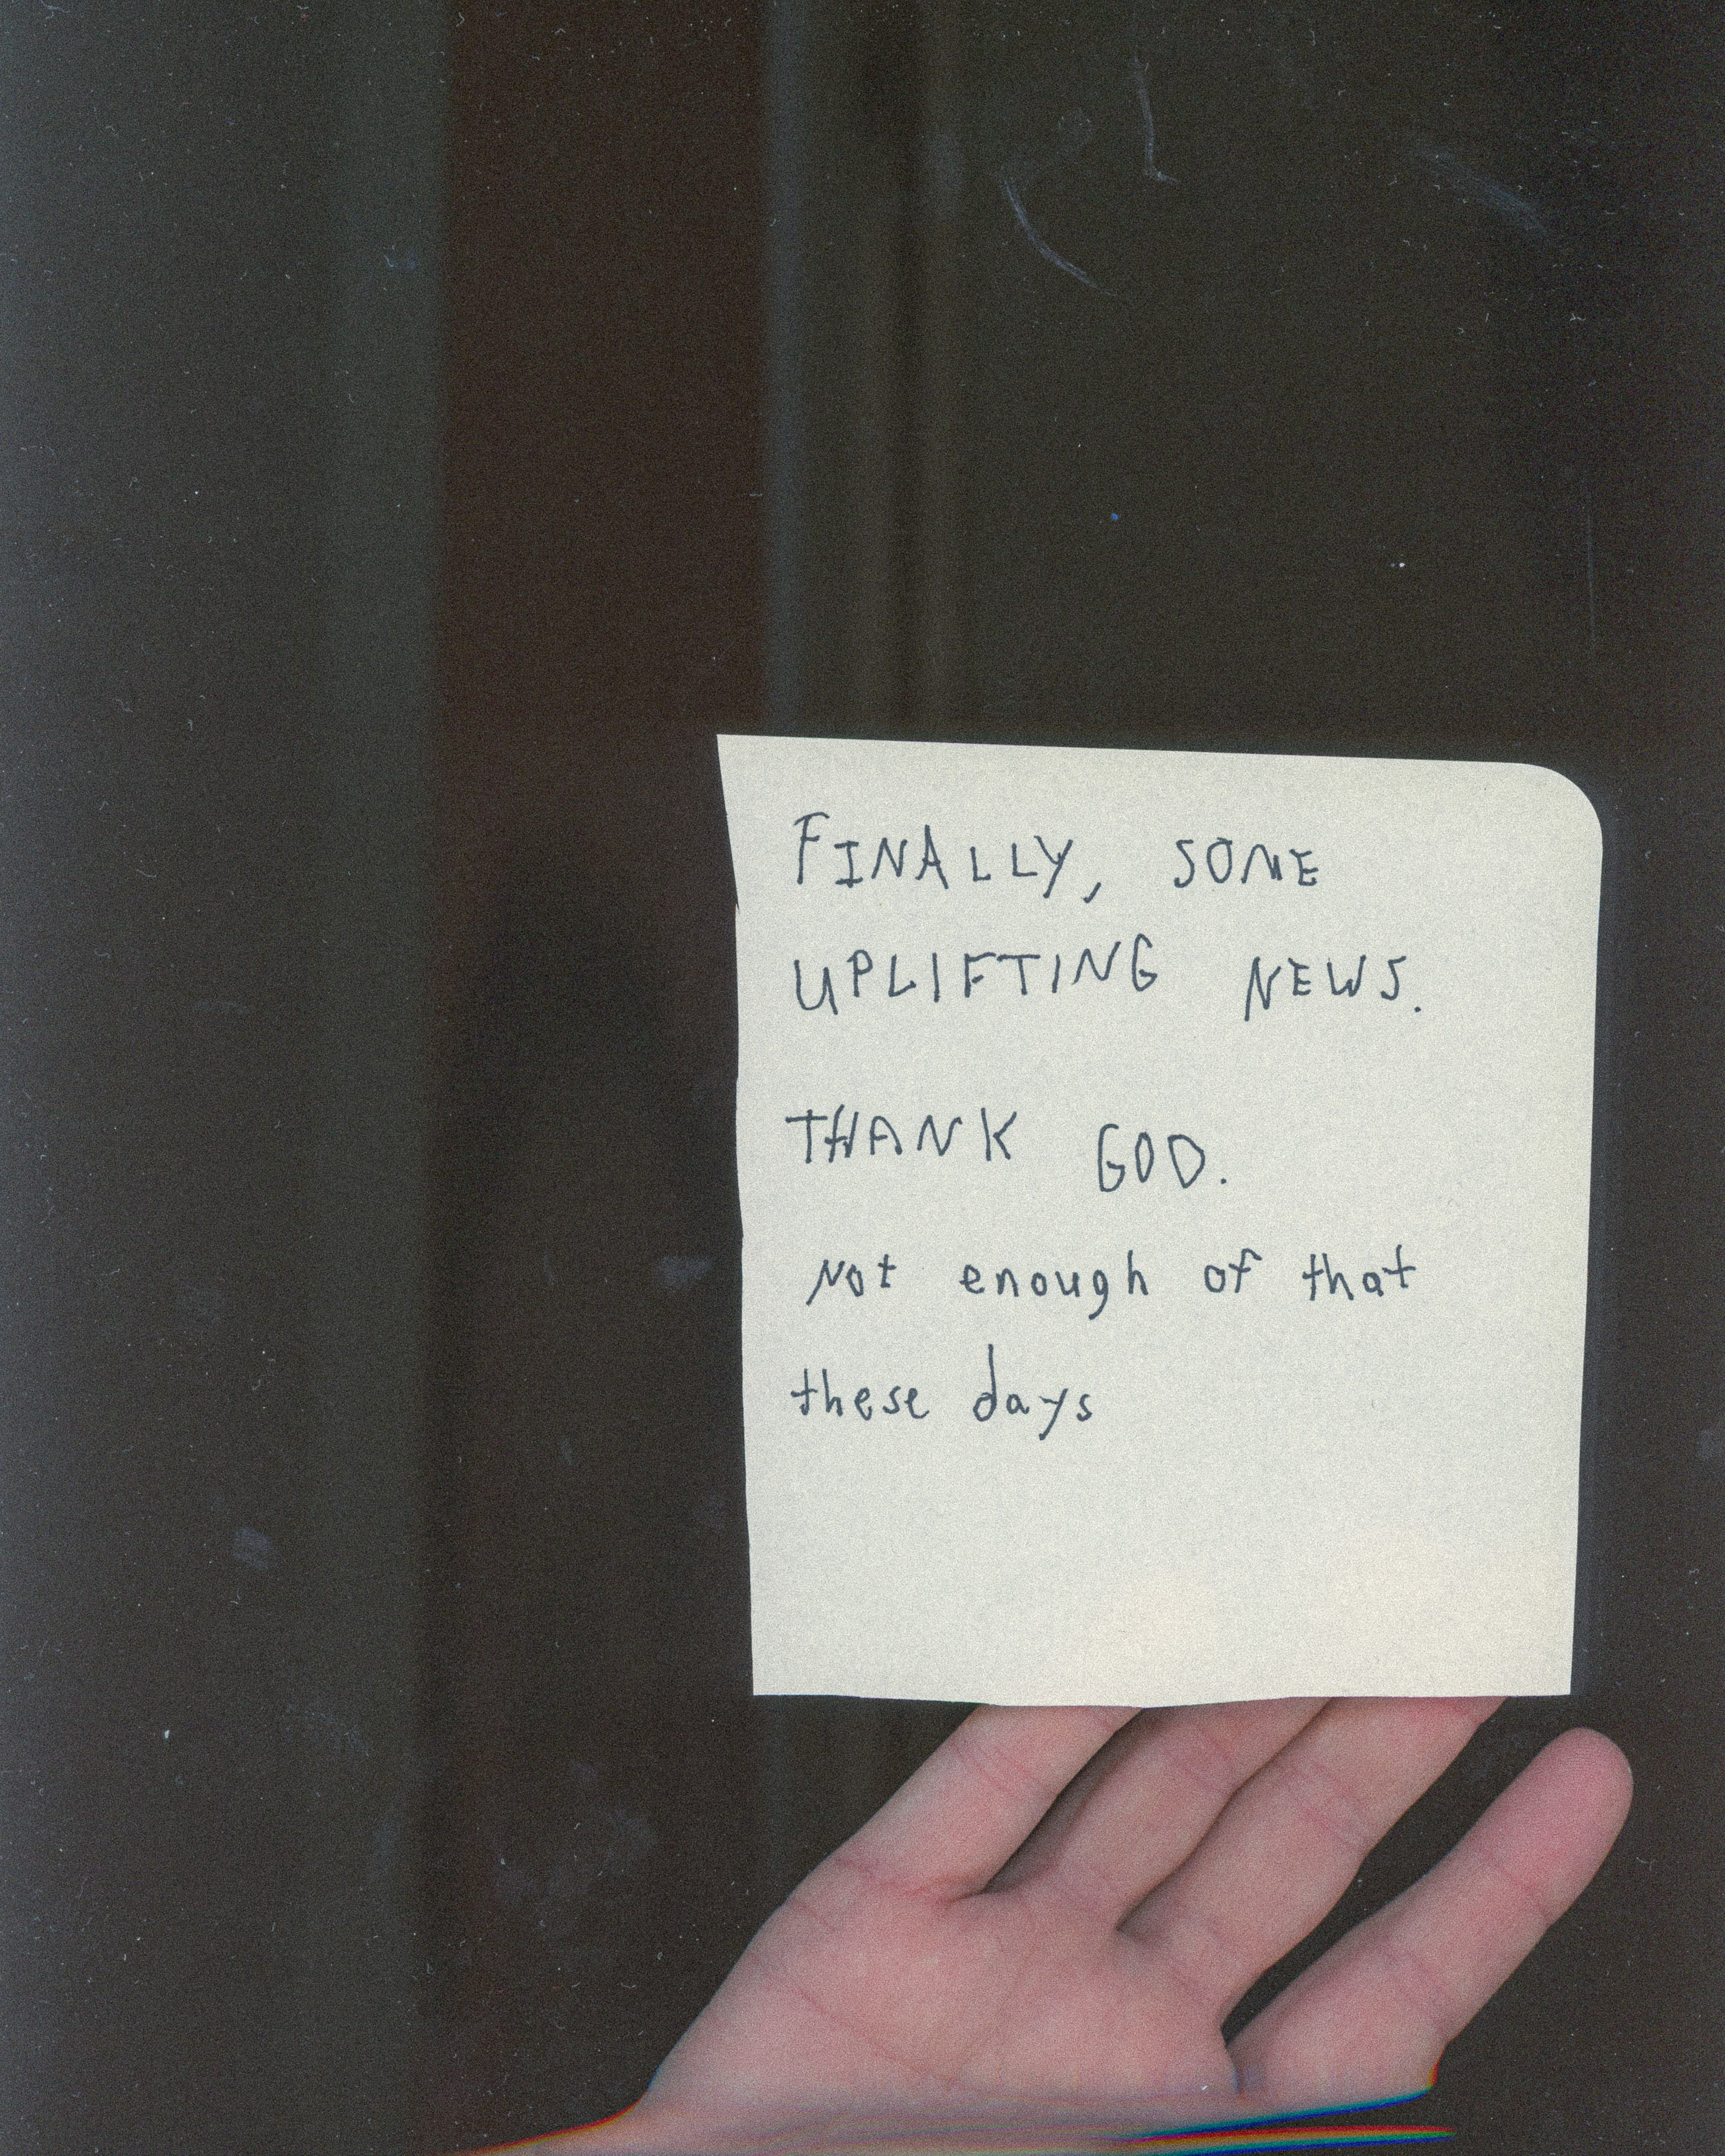 FINALLY, SOME
UPLIFTING NEWS.
THANK GOD.
Not enough of that
these days